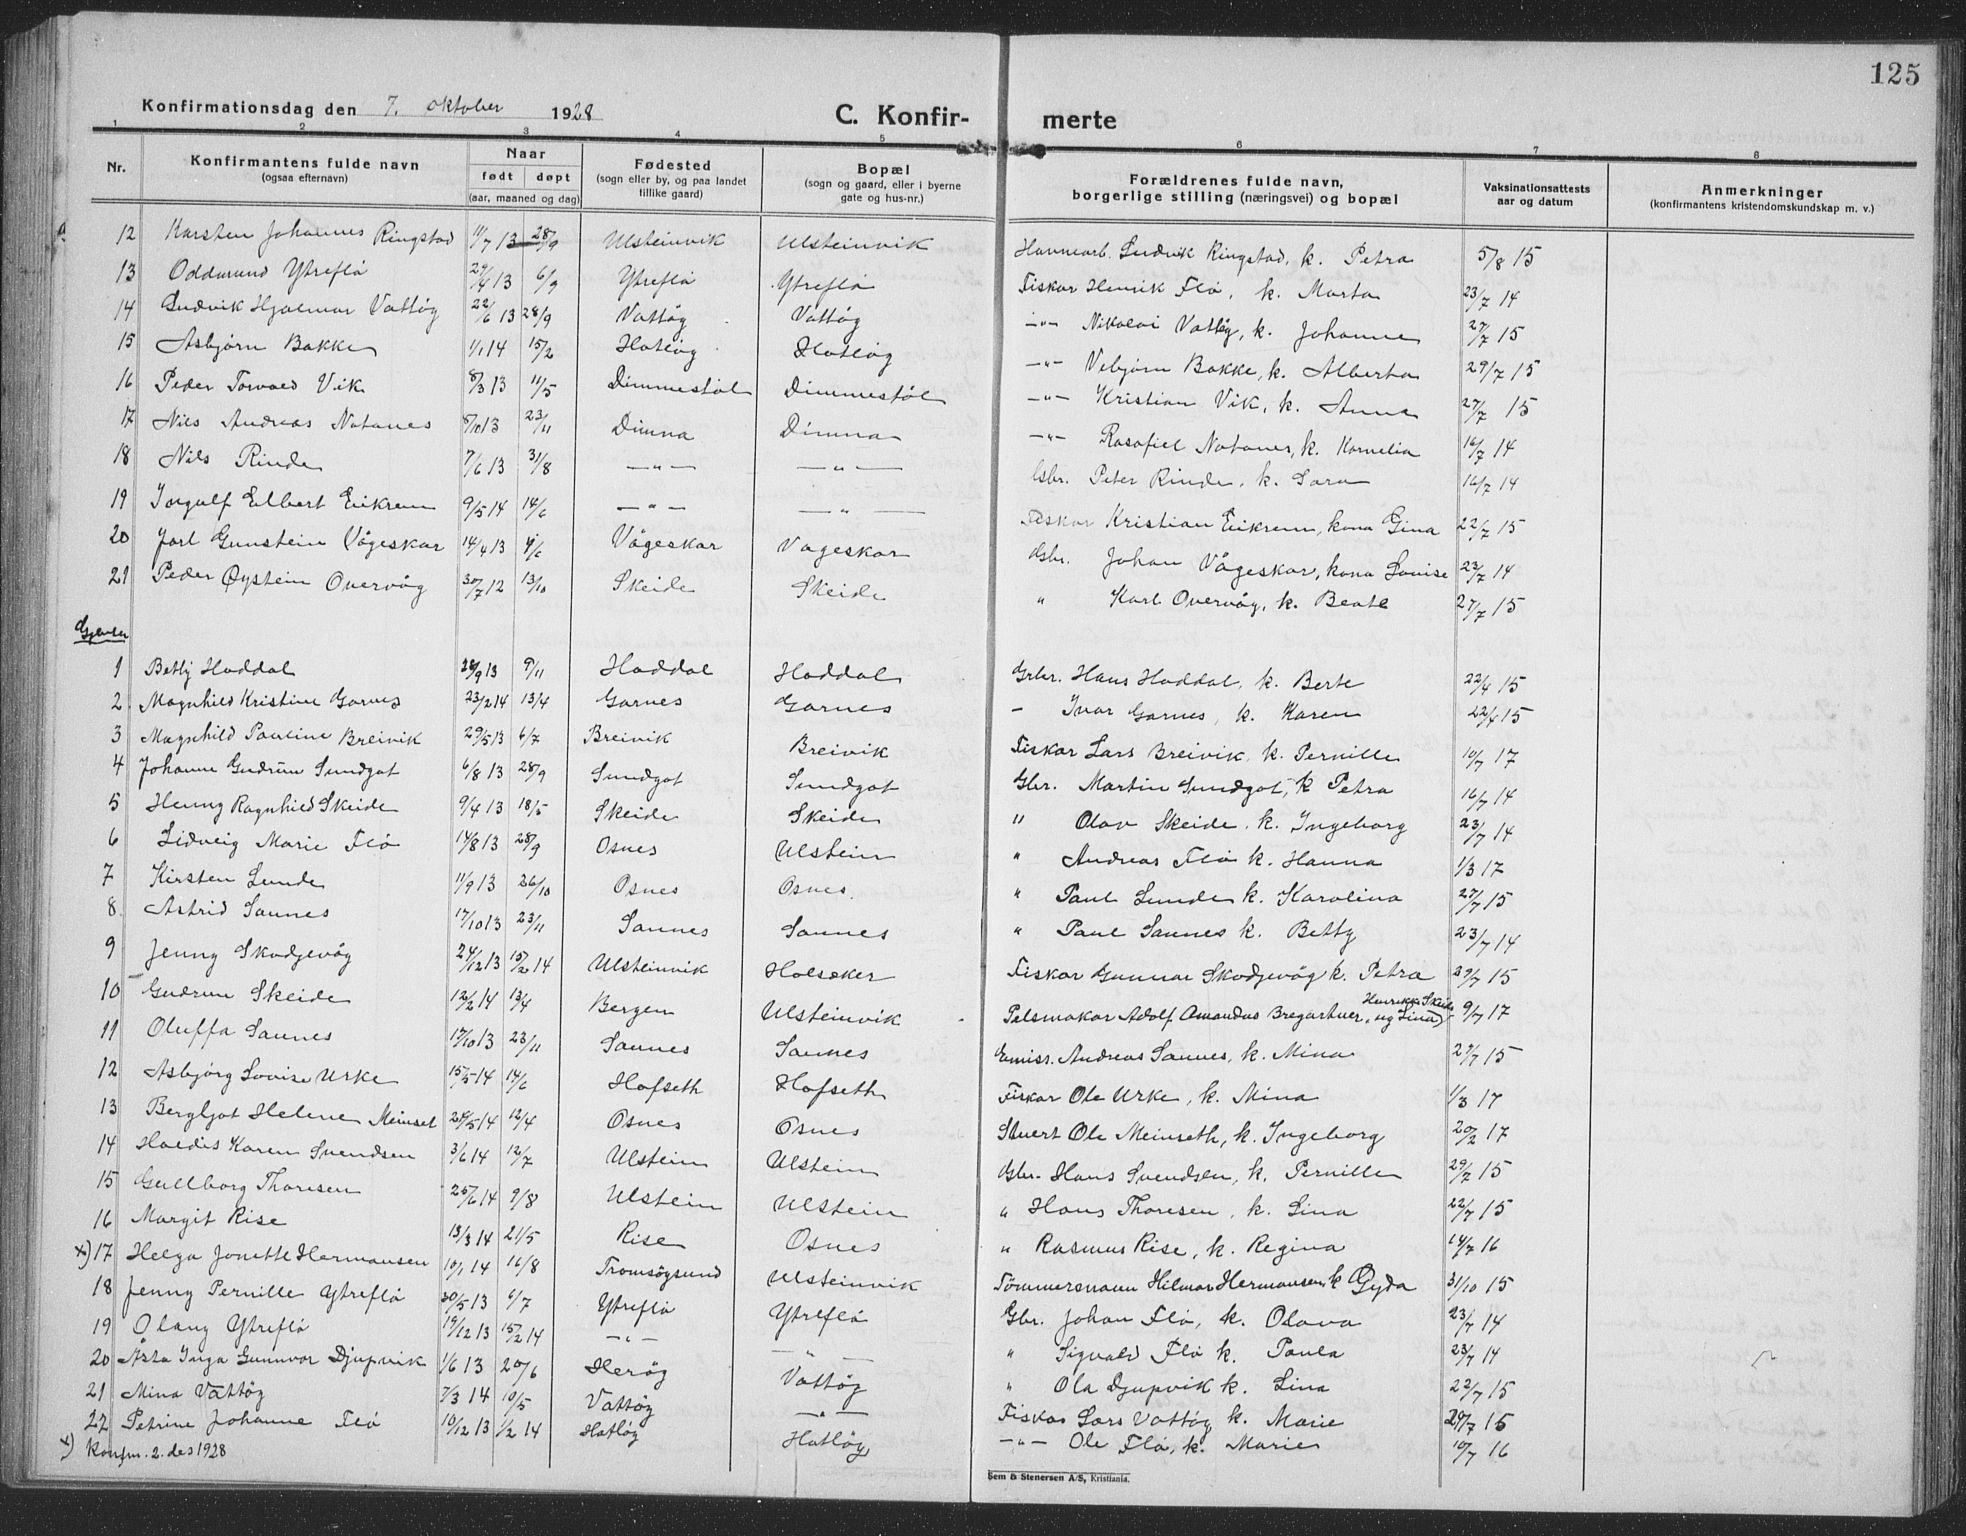 125
Konfirmationsdag den 7. oktober 1928 C. Konfir- merte
1 2 3 4 5 6 7 8
Nr. Konfirmantens fulde navn (ogsaa efternavn) Naar født døpt (aar, maaned og dag) Fødested (sogn eller by, og paa landet tillike gaard) Bopæl (sogn og gaard, eller i byerne gate og hus-nr.) Forældrenes fulde navn, borgerlige stilling (næringsvei) og bopæl Vaksinationsattests aar og datum Anmerkninger (konfirmantens kristendomskundskap m. v.)
12 Karsten Johannes Ringstad 11/7 13 28/9 Ulsteinvik Ulsteinvik Havnearb. Ludvik Ringstad, k. Petra 5/8 15
13 Oddmund Ytreflö 29/4 13 6/9 Ytreflö Ytreflö Fiskar Henrik Flö, k. Marta 23/7 14
14 Ludvik Hjalmar Vattöy 22/6 13 28/9 Vattöy Vattöy -"- Nikolai Vattöy, k. Johanne 27/7 15
15 Asbjørn Bakke 1/1 14 15/2 Hatlöy Hatlöy -"- Vebjørn Bakke, k. Alberta 29/7 15
16 Peder Torvald Vik 8/3 13 11/5 Dimmestöl Dimmestöl -"- Kristian Vik, k. Anna 27/7 15
17 Nils Andreas Notanes 8/10 13 23/11 Dimna Dimna -"- Rasofiel Notanes, k. Kornelia 16/7 14
18 Nils Rinde 7/6 13 31/8 -"- -"- Gbr. Peter Rinde, k. Sara 16/7 14
19 Ingulf Elbert Eikrem 9/5 14 14/6 -"- -"- Fiskar Kristian Eikrem, kona Gina 22/7 15
20 Jarl Gunstein Vågeskar 14/4 13 1/6 Vågeskar Vågeskar Gbr. Johan Vågeskar, kona Lovise 23/7 14
21 Peder Øystein Overvåg 30/7 12 13/10 Skeide Skeide " Karl Overvåg, k. Beate 27/7 15
Gjenter
1 Betty Haddal 28/9 13 9/11 Haddal Haddal Grbr. Hans Haddal, k. Berte 22/4 15
2 Magnhild Kristine Garnes 23/2 14 13/4 Garnes Garnes - Ivar Garnes, k. Karen 22/6 15
3 Magnhild Pauline Breivik 29/5 13 6/7 Breivik Breivik Fiskar Lars Breivik, k. Pernille 10/7 17
4 Johanne Gudrun Sundgot 6/8 13 28/9 Sundgot Sundgot Gbr. Martin Sundgot, k Petra 16/7 14
5 Henny Ragnhild Skeide 9/4 13 18/5 Skeide Skeide " Olav Skeide, k. Ingeborg 23/7 14
6 Lidveig Marie Flö 14/8 13 28/9 Osnes Ulstein " Andreas Flö k. Hanna 1/3 17
7 Kirsten Lunde 11/9 13 26/10 Osnes Osnes " Paul Lunde k. Karolina 27/7 15
8 Astrid Saunes 17/10 13 23/11 Saunes Saunes " Paul Saunes k. Betty 23/7 14
9 Jenny Skodjevåg 24/12 13 15/2 14 Ulsteinvik Holsæker Fiskar Gunnar Skodjevåg k. Petra 29/7 15
10 Gudrun Skeide 12/2 14 13/4 Bergen Ulsteinvik Pelsmakar Adolf Amandus Bregartner, og Lina Henrikke Skeide 9/7 17
11 Oluffa Saunes 17/10 13 23/11 Saunes Saunes Emiss. Andreas Saunes, k. Mina 27/7 15
12 Asbjörg Lovise Urke 15/5 14 14/6 Hofseth Hofseth Fiskar Ole Urke, k. Mina 1/3 17
13 Bergljot Helene Meinset 28/5 14 12/4 Osnes Osnes Stuert Ole Meinseth, k. Ingeborg 20/2 17
14 Haldis Karen Svendsen 3/6 14 12/7 Ulstein Ulstein Gbr. Hans Svendsen, k. Pernille 29/7 15
15 Gullborg Thoresen 25/6 14 9/8 Ulstein Ulstein " Hans Thoresen, k. Lina 22/7 15
16 Margit Rise 13/3 14 21/5 Rise Osnes " Rasmus Rise, k. Regina 14/7 16
x) 17 Helga Jonette Hermansen 10/1 14 16/8 Tromsöysund Ulsteinvik Tømmermann Hilmar Hermansen, k Gyda 31/10 15
18 Jenny Pernille Ytreflö 30/5 13 6/7 Ytreflö Ytreflö Gbr. Johan Flö, k. Olava 23/7 14
19 Olaug Ytreflö 19/12 13 15/2 14 -"- -"- " Sigvald Flö k. Paula 23/7 14
20 Asta Inga Gunnvor Djupvik 1/6 13 20/6 Heröy Vattöy " Ola Djupvik k. Lina 22/7 15
21 Mina Vattöy 7/3 14 10/5 Vattöy -"- Fiskar Lars Vattöy k. Marie 29/7 15
22 Petrine Johanne Flö 10/12 13 1/2 14 Hatlöy Hatlöy -"- Ole Flö, k. Marie 10/7 16
x) Konfm. 2. des 1928
Sem & Stenersen A/S, Kristiania.